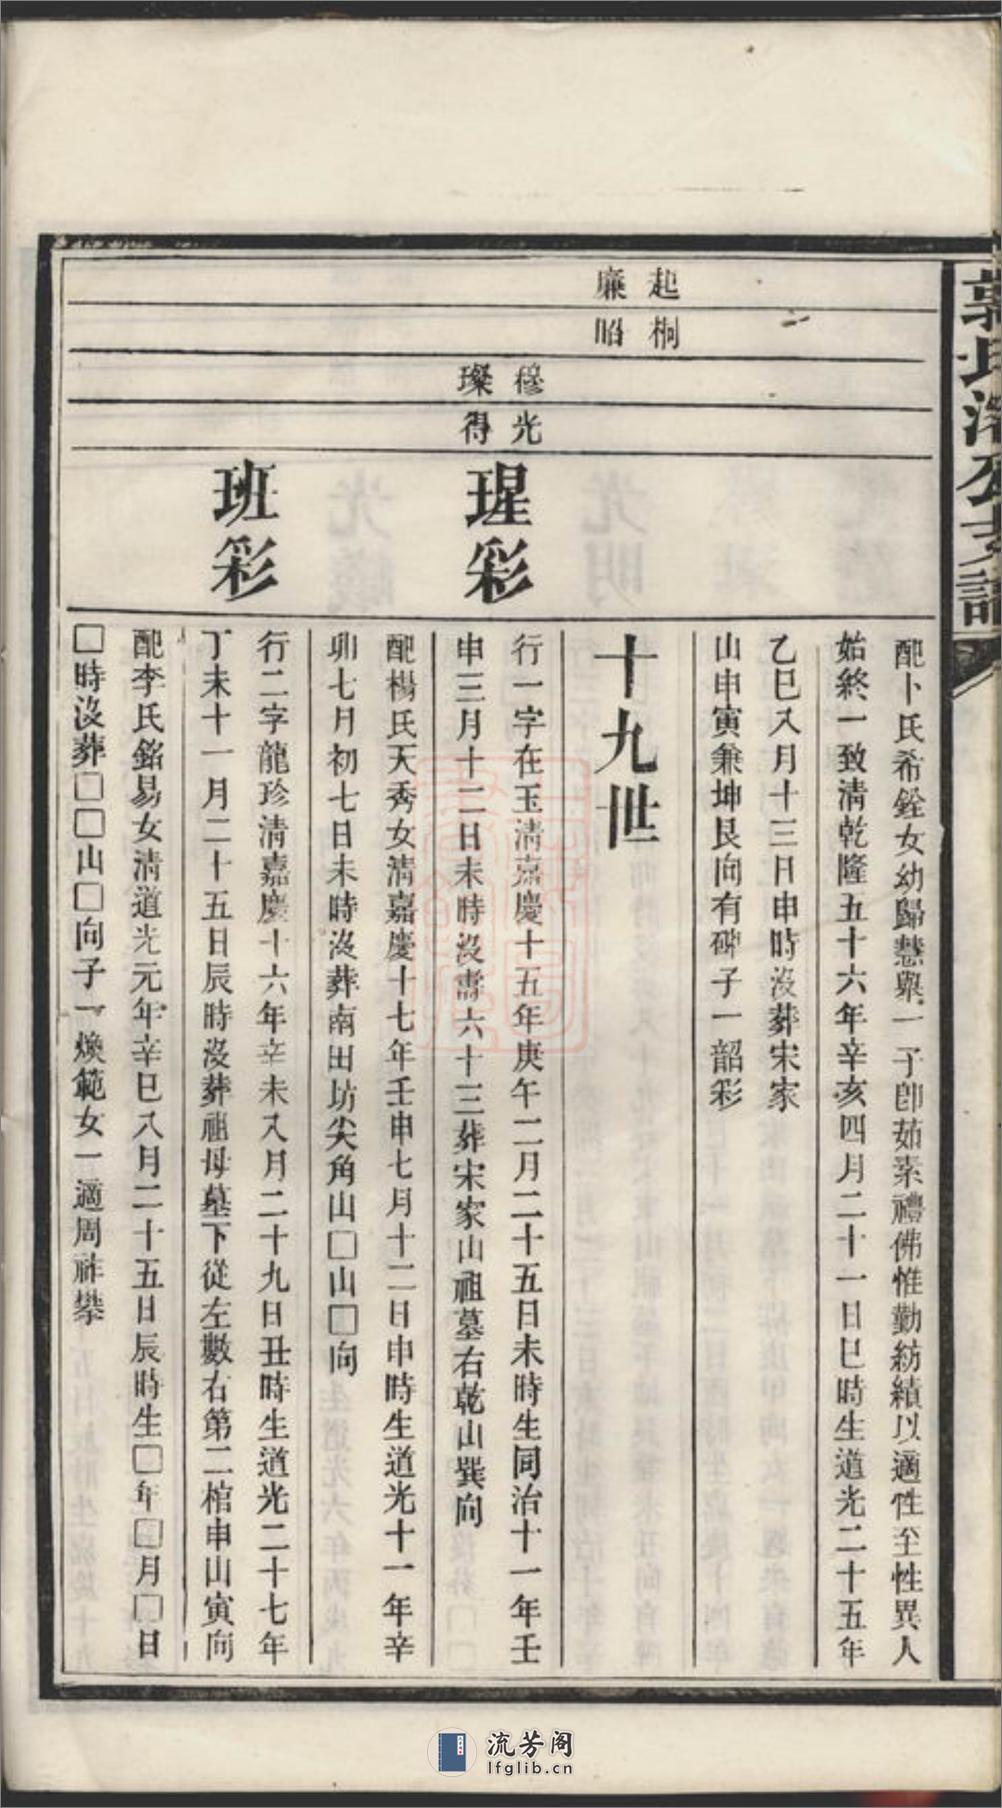 郭氏濬公支譜
起桐
廉昭
穆光
璨得
配卜氏希銓女幼歸慧舉一子卽茹素禮佛惟勤紡績以適性至性異人
始終一致淸乾隆五十六年辛亥四月二十一日巳時生道光二十五年
乙巳八月十三日申時沒葬宋家
山申寅兼坤艮向有碑子一韶彩
十九世
瑆彩
行一字在玉淸嘉慶十五年庚午二月二十五日未時生同治十一年壬
申三月十二日未時沒壽六十三葬宋家山祖墓右乾山巽向
配楊氏天秀女淸嘉慶十七年壬申七月十二日申時生道光十一年辛
卯七月初七日未時沒葬南田坊尖角山□山□向
班彩
行二字龍珍淸嘉慶十六年辛未八月二十九日丑時生道光二十七年
丁未十一月二十五日辰時沒葬祖母墓下從左數右第二棺申山寅向
配李氏銘易女淸道光元年辛巳八月二十五日辰時生□年□月□日
□時沒葬□□山□向子一煥範女一適周祚攀
流芳阁
lfglib.cn